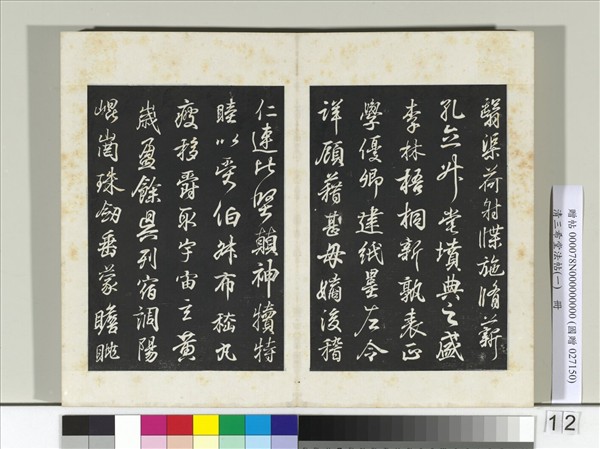 渠荷射牒施脩薪
孔升堂墳典之盛
李林梧桐新孰表正
學優卿建紙墨左令
詳顧藉甚毋嫡後稽
仁連比堅顛神犢特
睦以受伯叔布嵇九
移爵取宇宙立黄
歲盈餘與列宿調陽
崐崗珠劍垂蒙瞻眺
贈帖 000078N000000000 (國贈 027150)
清三希堂法帖(一) 冊
12